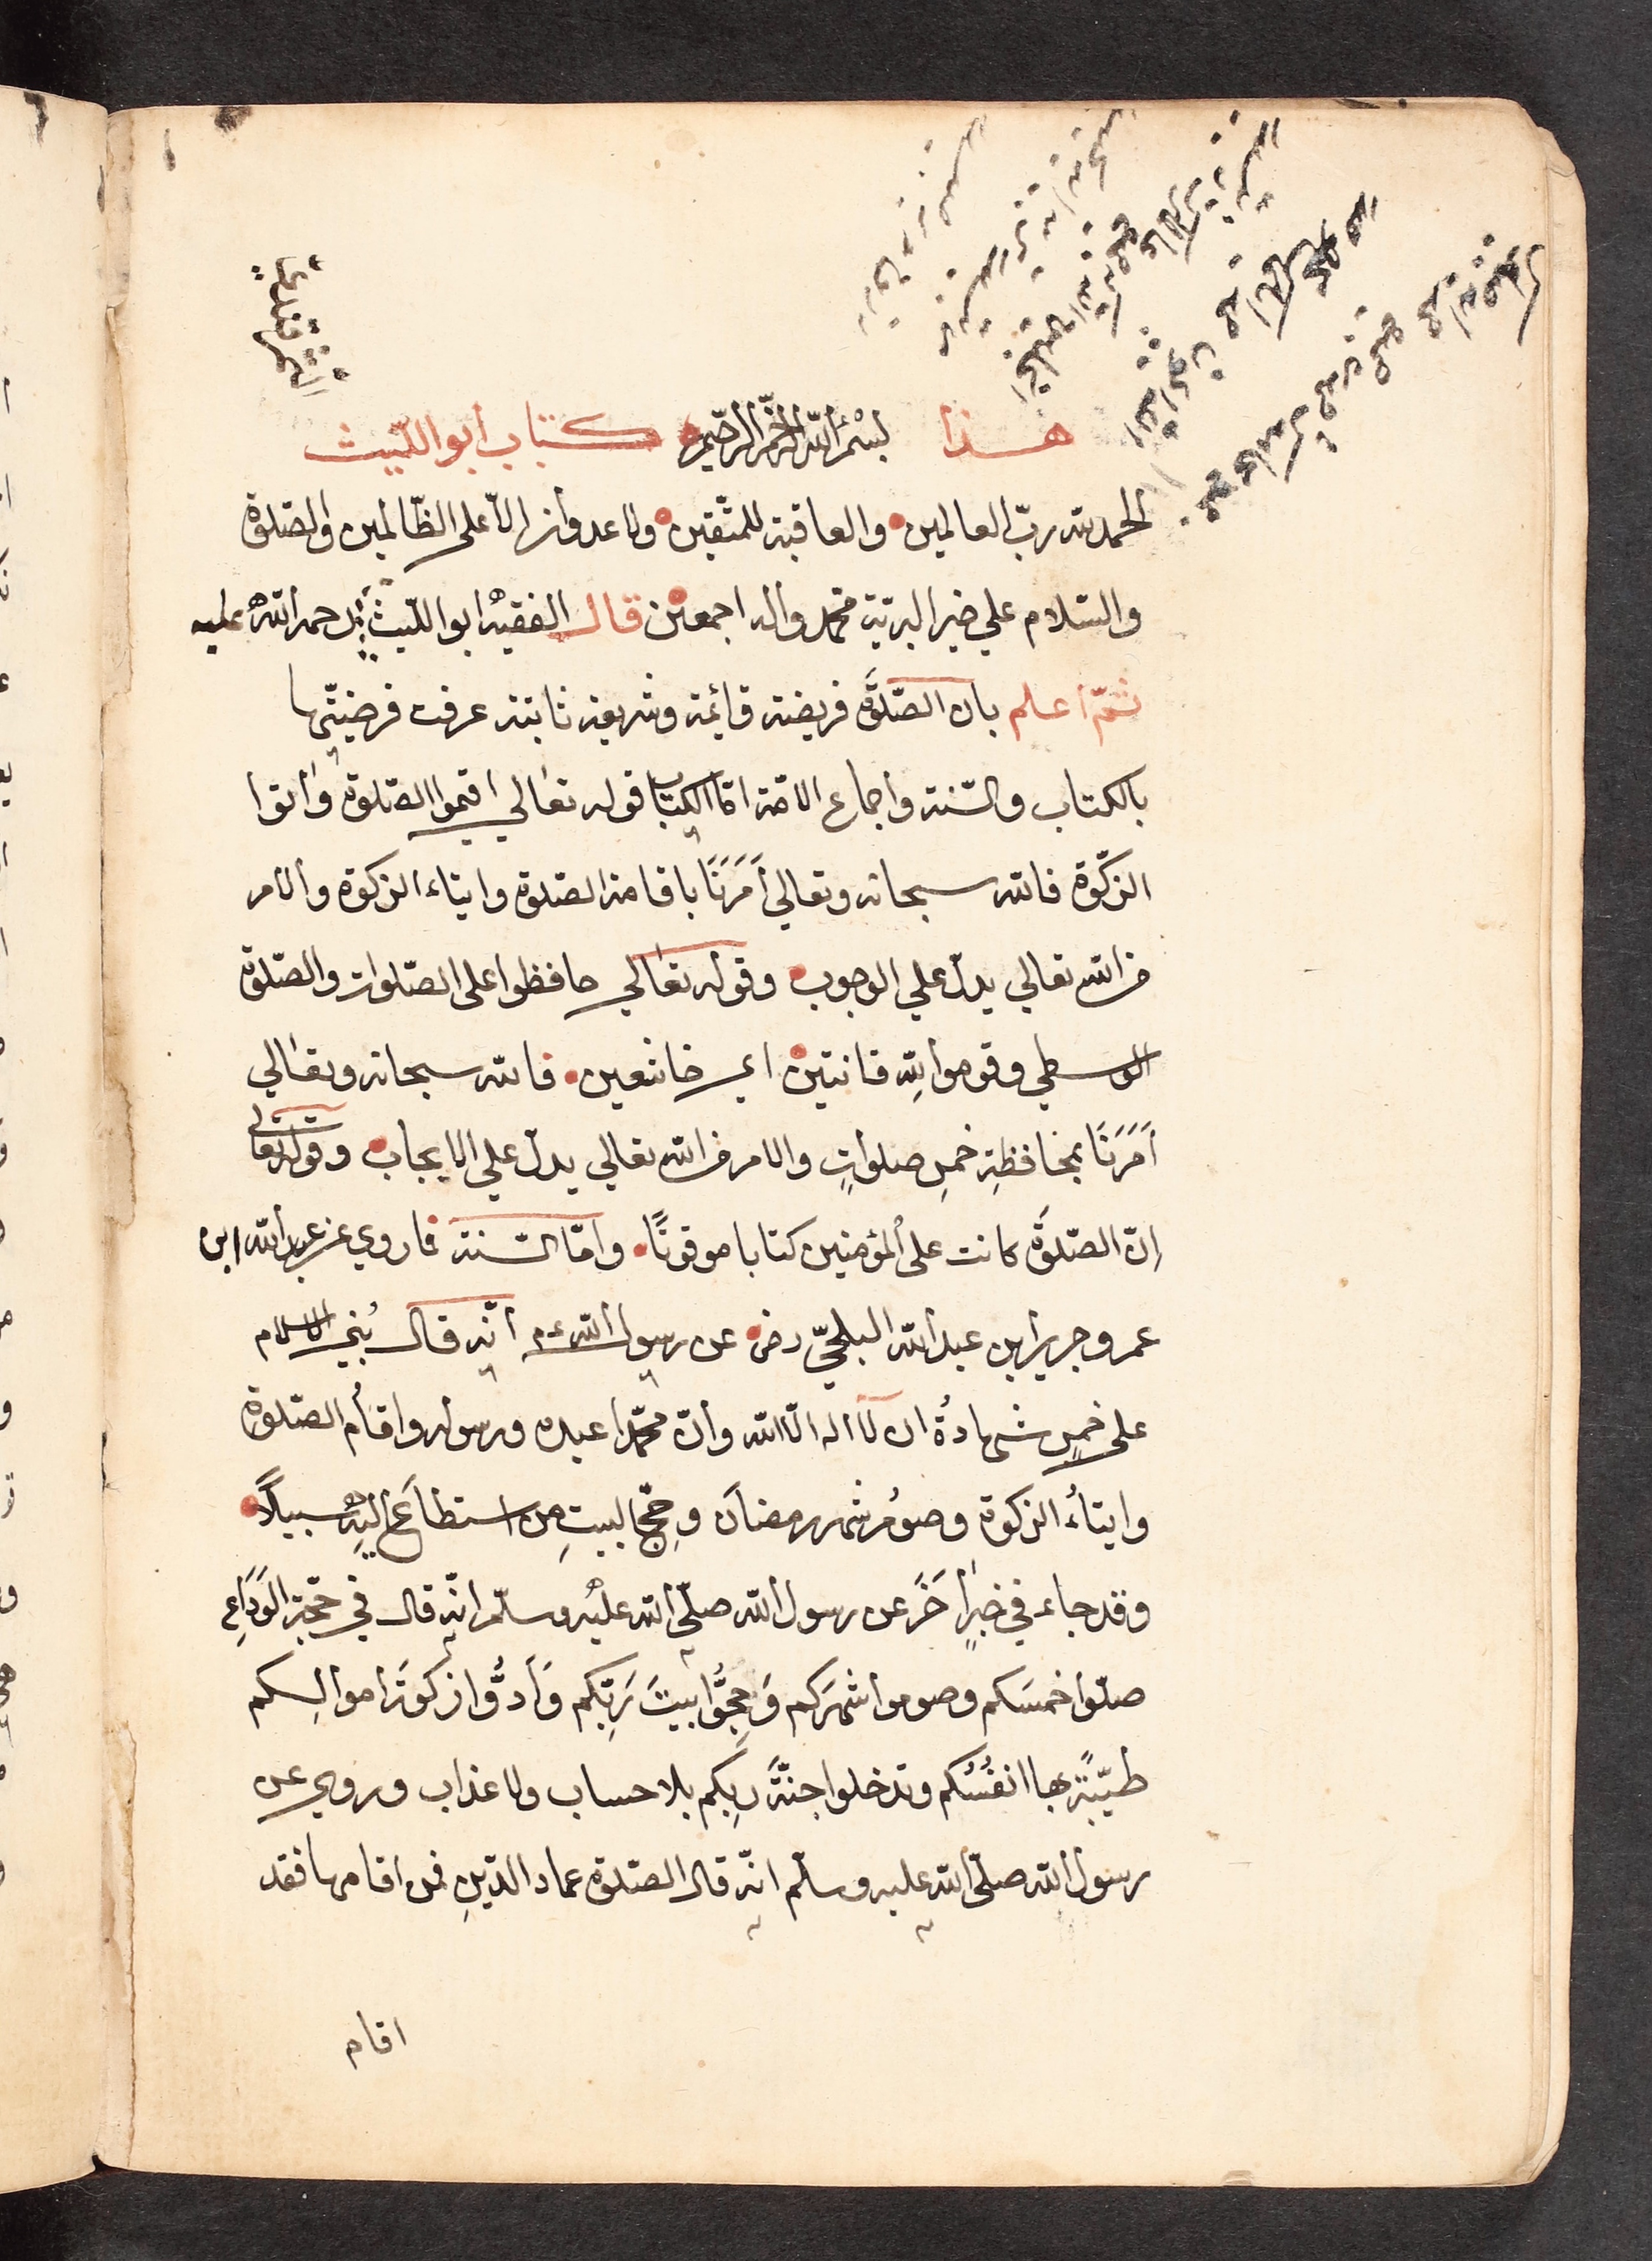 هذا بسم الله الرّحمن الرّحيم كتاب ابو اللّيث
الحمد لله ربّ العالمين والعاقبة للمتّقين ولا عدوان الّا على الظّالمين والصّلوة
والسّلام علي خير البريّة محمّد واله اجمعين قال الفقيه ابو اللّيث رحمة الله عليه
ثمّ اعلم بان الصّلوة فريضة قائمة وشريعة ثابتة عرفت فرضيّتها
بالكتاب والسّنة واجماع الامّة امّا الكتاب قوله تعالي اقيموا الصّلوة واتوا
الزّكوة فالله سبحانه وتعالي اَمَرَنَا باقامة الصّلوة وايتاء الزكوة والامر
من الله تعالي يدلّ علي الوجوب وقوله تعالي حافظوا على الصّلوات والصّلوة
الوسطي وقوموا لِلّه قانتين اي خاشعين فالله سبحانه وتعالي
اَمَرَنَا بمحافظةِ خمسِ صلواتٍ والامر من الله تعالي يدلّ علي الايجاب وقوله تعالى
اِنّ الصّلوةَ كانت على المؤمنين كتابا موقوتًا وامّا السّنة فما روي عن عبد الله ابن
عمر وجرير ابن عبد الله البلجيّ رض عن رسول الله عم انّه قال بُني الاسلام
على خمسٍ شهادةُ ان لا اله الّا الله وانّ محمّدا عبده ورسوله واقام الصّلوة
وايتاءُ الزكوة وصومُ شهر رمضان وحِجّ البيتِ من استطاع اليه سبيلاً
وقد جاء في خبرٍ اخَرَ عن رسول الله صلّي الله عليه وسلّم انّه قال في حجّة الوَدَاعِ
صلّوا خمسَكم وصوموا شهرَكم وَحِجُّوا بيتَ رَبِّكم وَاَدُّوا زكوةَ اموالِكم
طيّبةً بها انفُسُكم وتدخلوا جنّةَ ربِكم بلا حساب ولا عذاب وروي عن
رسول الله صلّي الله عليه وسلّم انّه قال الصّلوة عماد الدّينِ فمن اقامها فقد
اقام